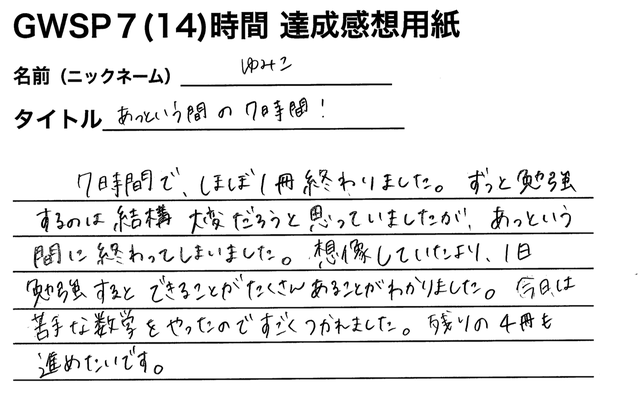 GWSP７(14)時間 達成感想用紙
名前（ニックネーム） ゆみこ
タイトル あっという間の7時間！
7時間で、ほぼ1冊終わりました。ずっと勉強
するのは結構大変だろうと思っていましたが、あっという
間に終わってしまいました。想像していたより、1日
勉強するとできることがたくさんあることがわかりました。今日は
苦手な数学をやったのですごくつかれました。残りの4冊も
進めたいです。